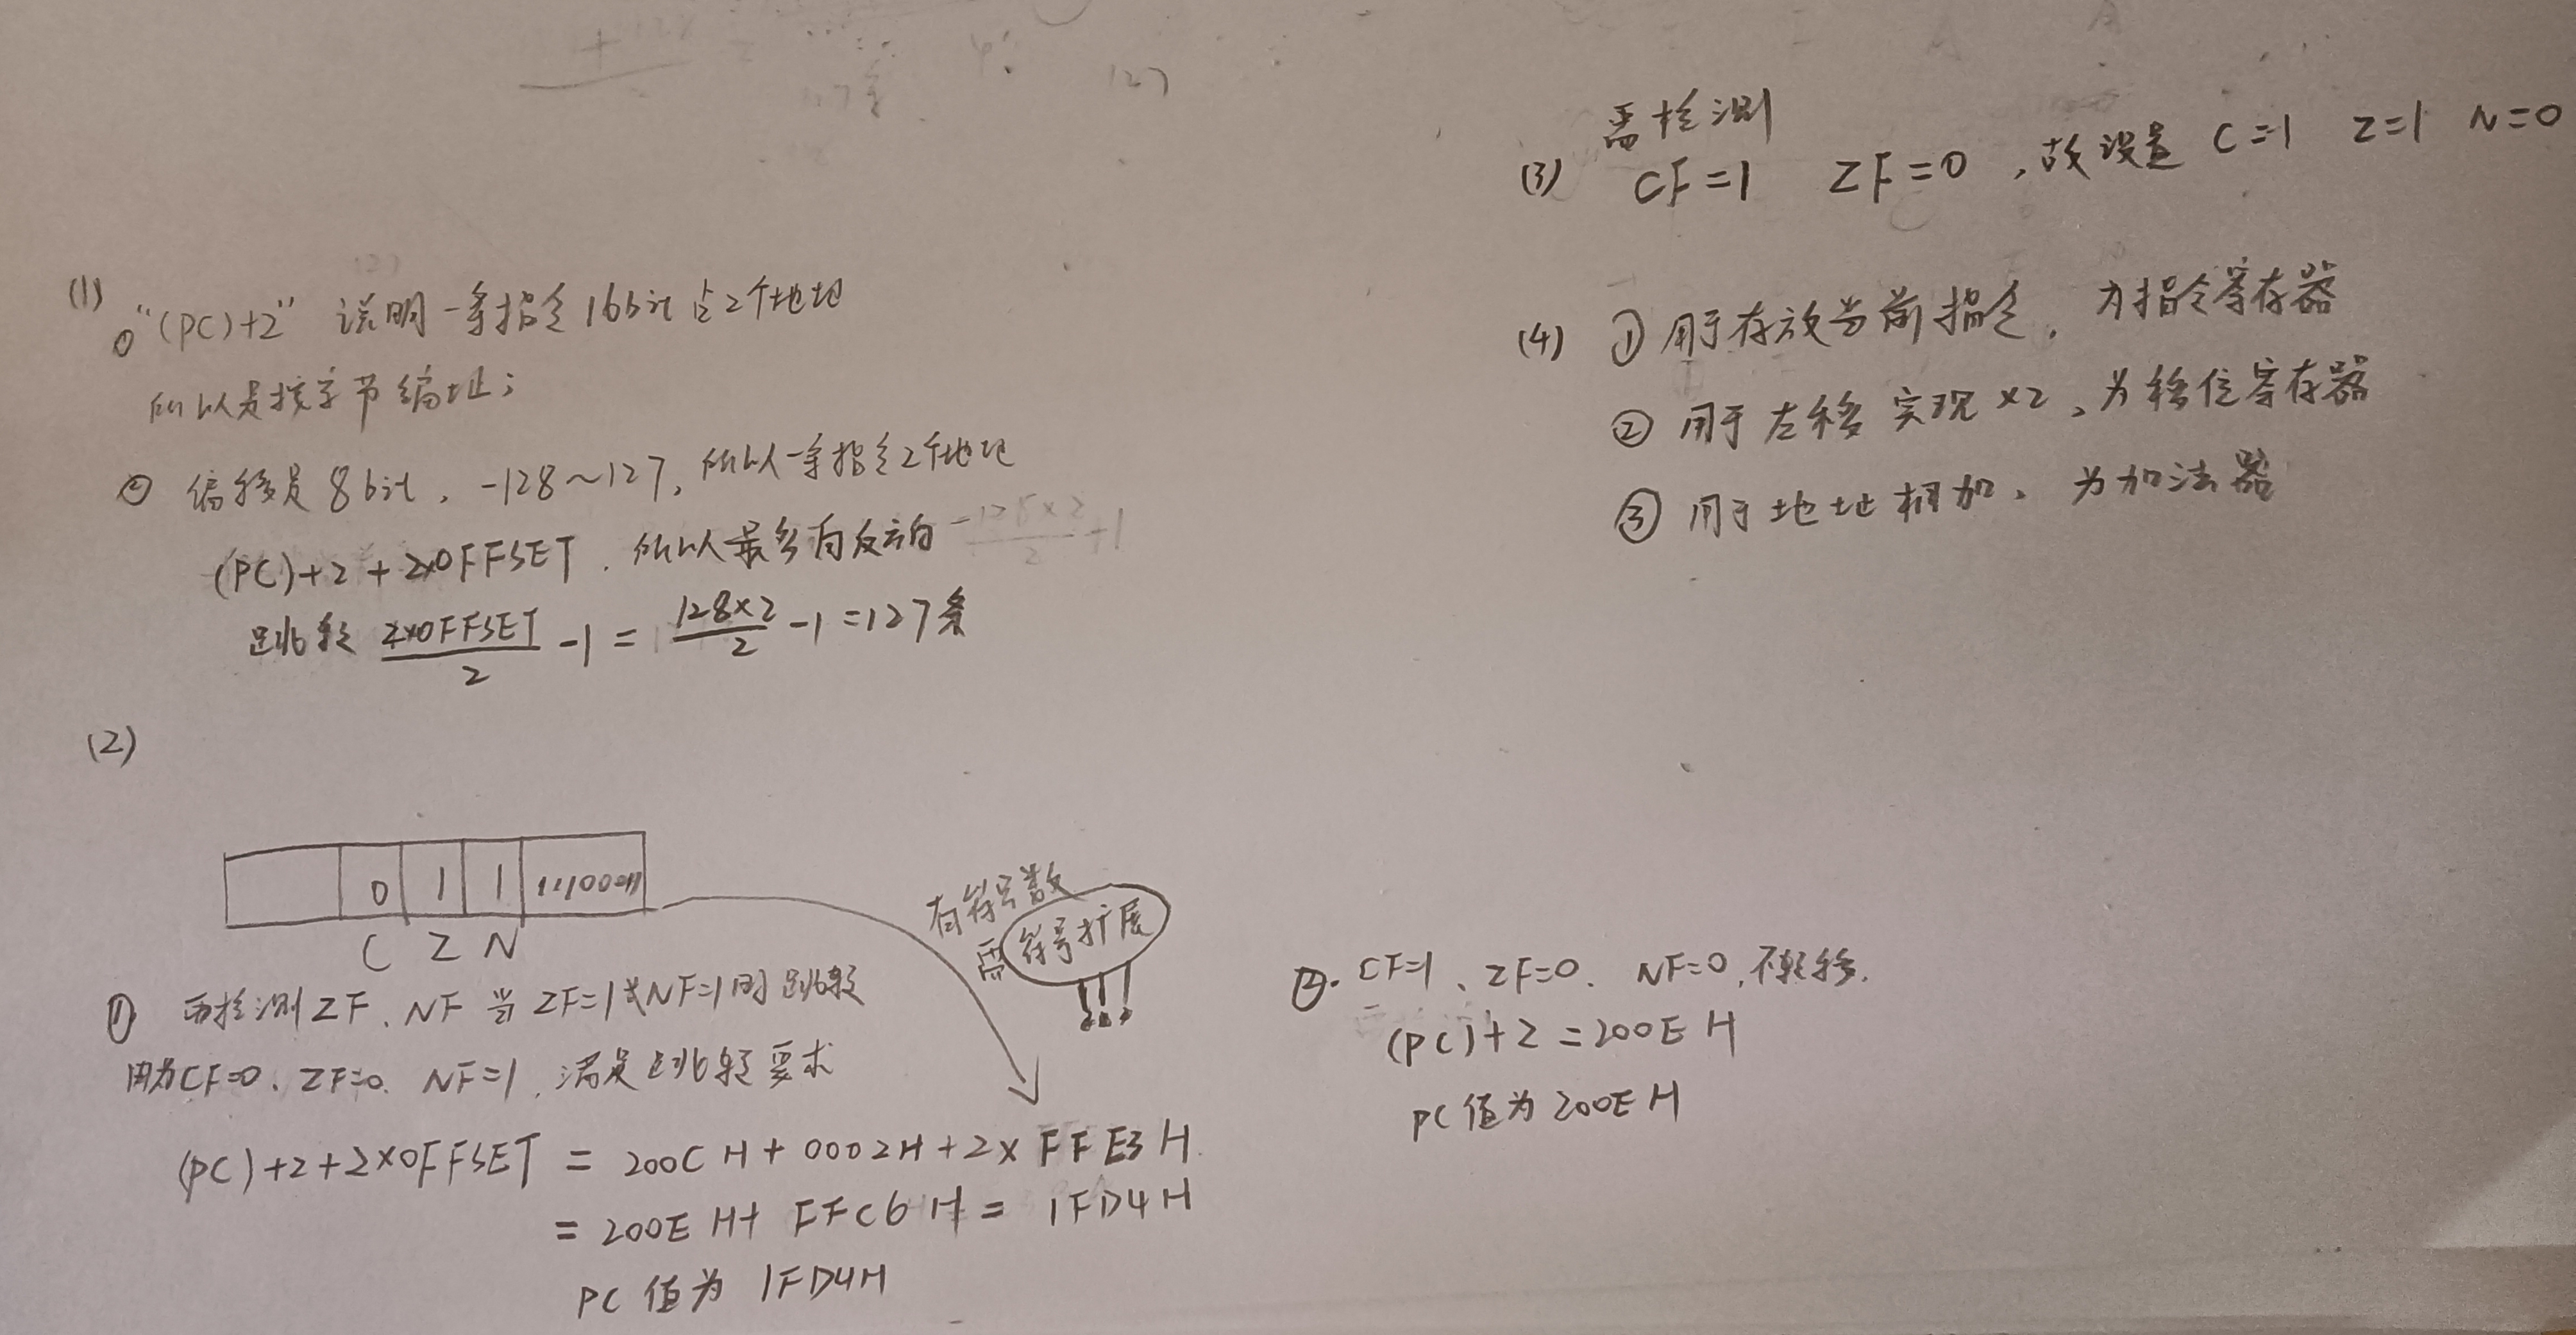 (1) ① "(PC)+2" 说明一条指令16bit占2个地址
所以是按字节编址;
② 偏移是8bit, -128~127, 所以一条指令2个地址
(PC)+2+2×OFFSET. 所以最多向反方向
跳转 2×OFFSET/2 -1 = 128×2/2 -1 =127条
(2)
0 1 1 11100011
C Z N
有符号数
需符号扩展
① 需检测ZF、NF 当ZF=1或NF=1时跳转
因为CF=0、ZF=0、NF=1,满足跳转要求
(PC)+2+2×OFFSET = 200CH+0002H+2×FFE3H
= 200EH+FFC6H = 1FD4H
PC值为1FD4H
②. CF=1、ZF=0、NF=0,不转移.
(PC)+2=200EH
PC值为200EH
需检测
(3) CF=1 ZF=0 ,故设置 C=1 Z=1 N=0
(4) ①用于存放当前指令, 为指令寄存器
② 用于左移实现×2、为移位寄存器
③ 用于地址相加、为加法器